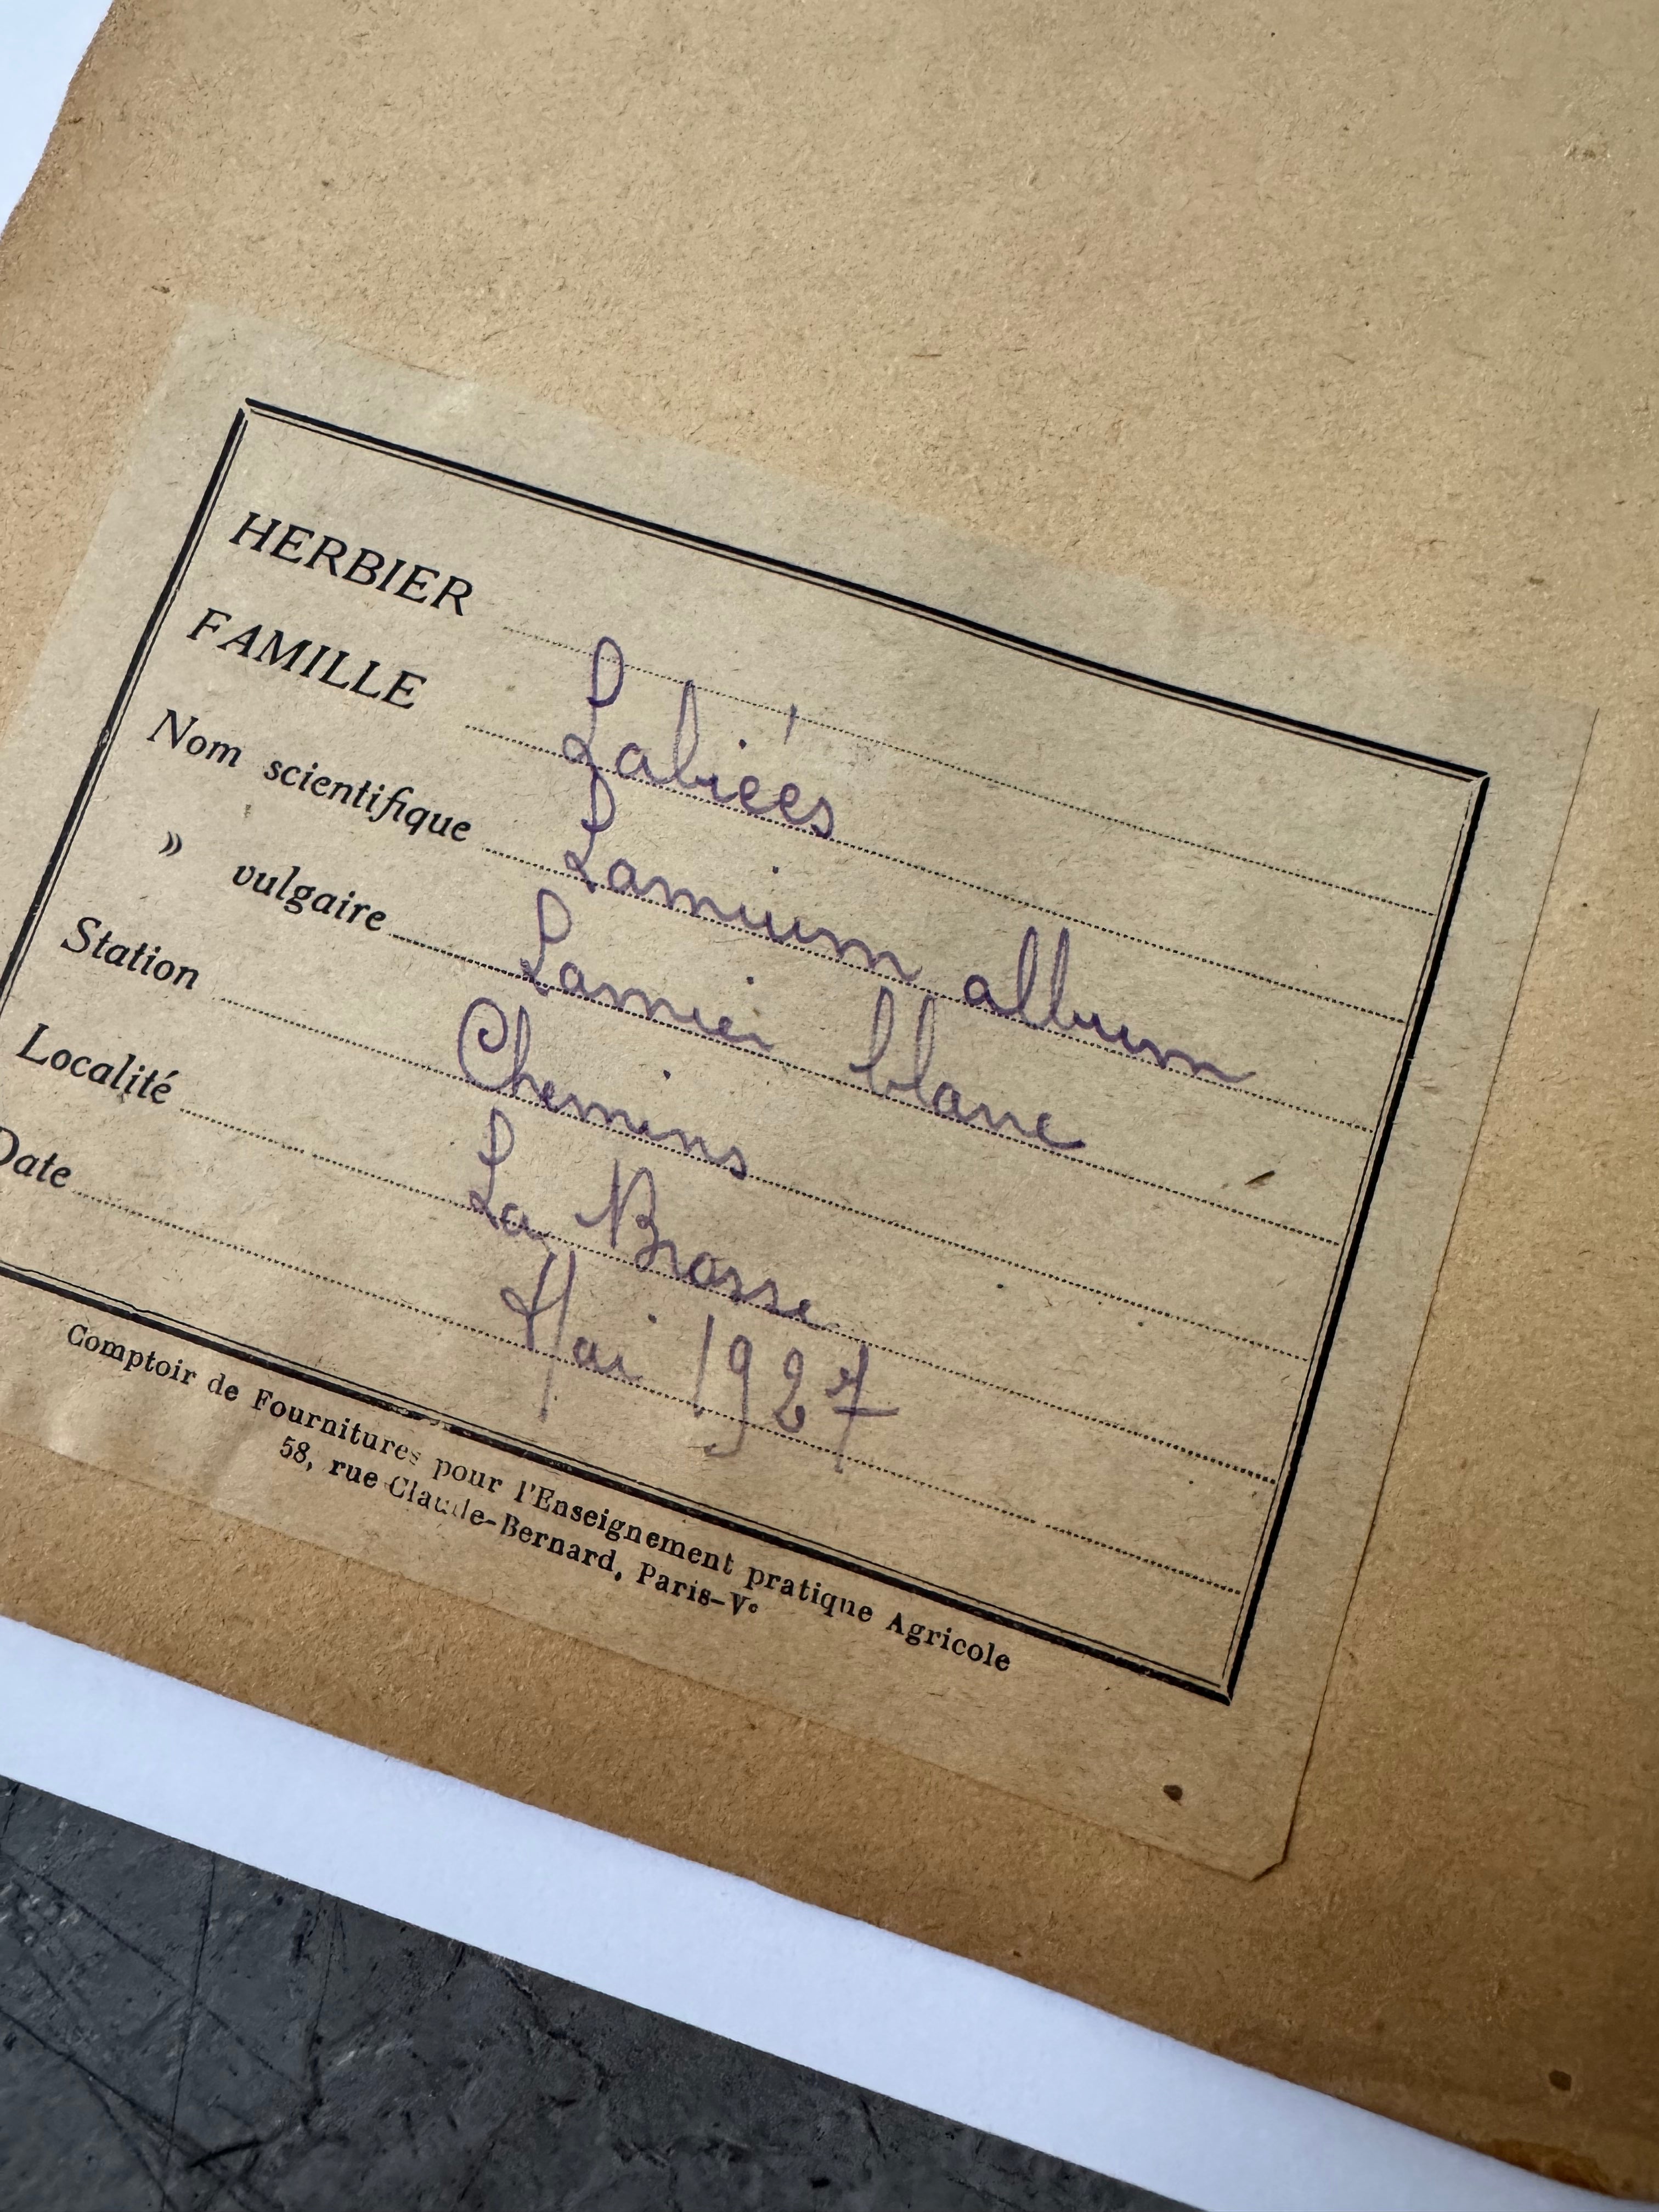 HERBIER
FAMILLE Labiées
Nom scientifique Lamium album
» vulgaire Lamier blanc
Station Chemins
Localité La Brosse
Date Mai 1927
Comptoir de Fournitures pour l'Enseignement pratique Agricole
58, rue Claude-Bernard, Paris-Ve